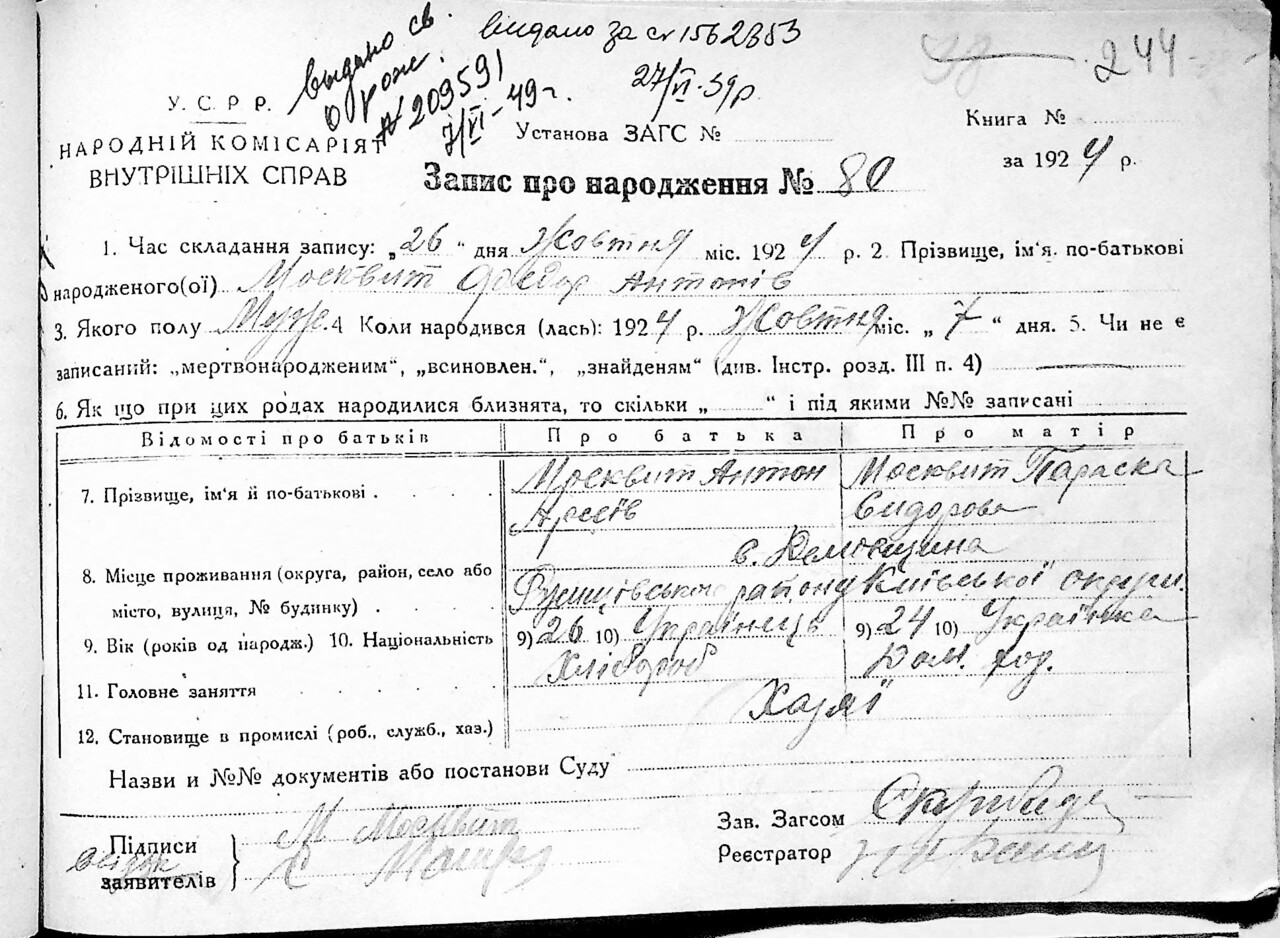 видано за сг 1562853
27/VI-39р
244
видано св.
о рож.
№ 209591
7/VI-49 г.
У.С.Р.Р.
НАРОДНІЙ КОМІСАРІЯТ
ВНУТРІШНІХ СПРАВ
Установа ЗАГС №
Книга №
за 1924 р.
Запис про народження № 80
1. Час складання запису: „26“ дня Жовтня міс. 1924 р. 2. Прізвище, ім'я. по-батькові
народженого(ої) Москвит Федор Антонів
3. Якого полу Муж. 4 Коли народився (лась): 1924 р. Жовтня міс. „7“ дня. 5. Чи не є
записаний: „мертвонародженим“, „всиновлен.“, „знайденям“ (див. Інстр. розд. III п. 4)
6. Як що при цих родах народилися близнята, то скільки „ “ і під якими №№ записані
Відомості про батьків Про батька Про матір
7. Прізвище, ім'я й по-батькові . . . . Москвит Антон Москвит Параска
Арсеїв Сидорова
с.
8. Місце проживання (округа, район, село або
місто, вулиця, № будинку) . . . . району Київської округи.
9. Вік (років од народж.) 10. Національність 9) 26 10) Українець 9) 24 10) Українка
11. Головне заняття . . . . . Хлібороб Дом. гос.
12. Становище в промислі (роб., служб., хаз.) Хазяї
Назви и №№ документів або постанови Суду
Підписи
заявителів
М Москвит
Зав. Загсом
Реєстратор